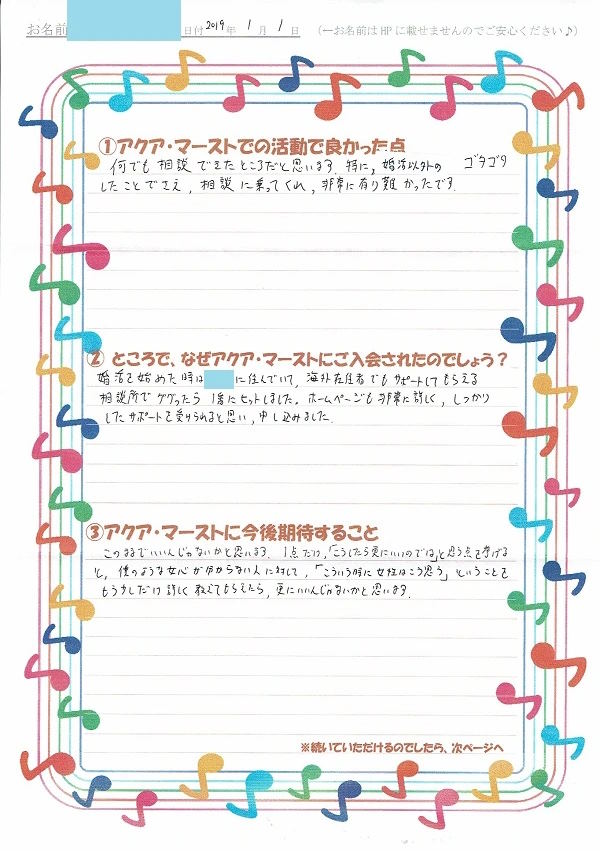 お名前 日付 2019年 1月 1日 (←お名前はHPに載せませんのでご安心ください♪)
①アクア・マーストでの活動で良かった点
何でも相談できたところだと思います。特に、婚活以外の ゴタゴタ
したことでさえ、相談に乗ってくれ、非常に有り難かったです。
② ところで、なぜアクア・マーストにご入会されたのでしょう?
婚活を始めた時は に住んでいて、海外在住者でもサポートしてもらえる
相談所でググったら1番にヒットしました。ホームページも非常に詳しく、しっかり
したサポートを受けられると思い、申し込みました。
③アクア・マーストに今後期待すること
このままでいいんじゃないかと思います。1点だけ、「こうしたら更にいいのでは」と思う点を挙げる
と、僕のような女心が分からない人に対して、「こういう時に女性はこう思う」ということを
もう少しだけ詳しく教えてもらえたら、更にいいんじゃないかと思います。
※続いていただけるのでしたら、次ページへ